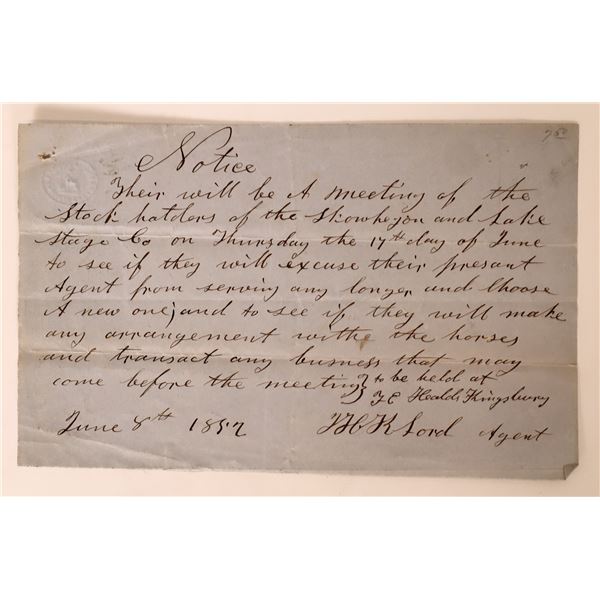 7 50
Notice
Their will be A meeting of the
Stock holders of the Skowhegon and Lake
Stage Co on Thursday the 17th day of June
to see if they will excuse their presant
Agent from serving any longer and Choose
A new one, and to see if they will make
any arrangement withe the horses
and transact any busness that may
come before the meeting to be held at
T C Healds Kingsbury
June 8th 1852
T H K Lord Agent